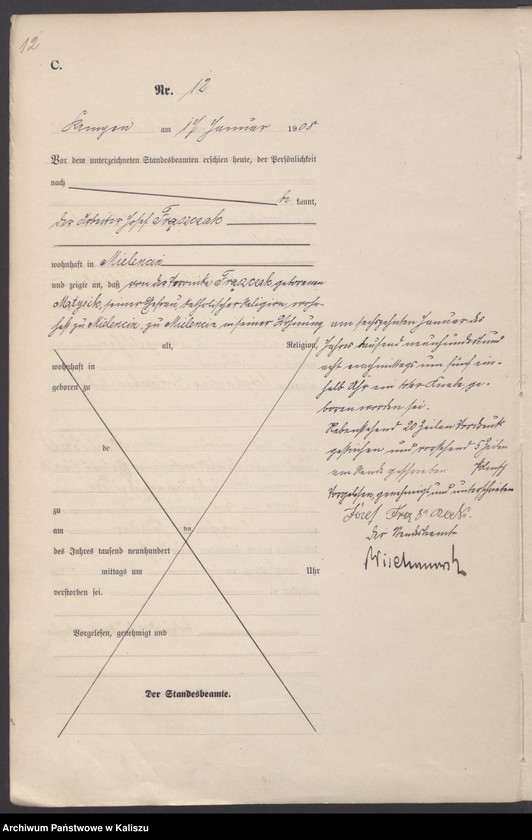 12
C.
Nr. 12
Kempen am 17 Januar 1908
Vor dem unterzeichneten Standesbeamten erschien heute, der Persönlichkeit
nach
be kannt,
der Arbeiter Josef Frąszczak
wohnhaft in Mielencin
und zeigte an, daß von der Frąszczak geborenen
Matysik, seiner Ehefrau, katholischer Religion, wohn-
haft zu Mielencin, zu Mielencin in seiner Wohnung
am sechszehnten Januar des
Jahres tausend neunhundert und
acht nachmittags um fünf ein-
halb Uhr ein toter Knabe ge-
boren worden sei.
Nebenstehend 20 Zeilen Vordruck
gestrichen und vorstehend 5 Zeilen
am Rande geschrieben
Vorgelesen, genehmigt und unterschrieben
Józef Frąszczak.
Der Standesbeamte
alt, Religion,
wohnhaft in
geboren zu
de
zu
am ten
des Jahres tausend neunhundert
mittags um Uhr
verstorben sei.
Vorgelesen, genehmigt und
Der Standesbeamte.
Archiwum Państwowe w Kaliszu